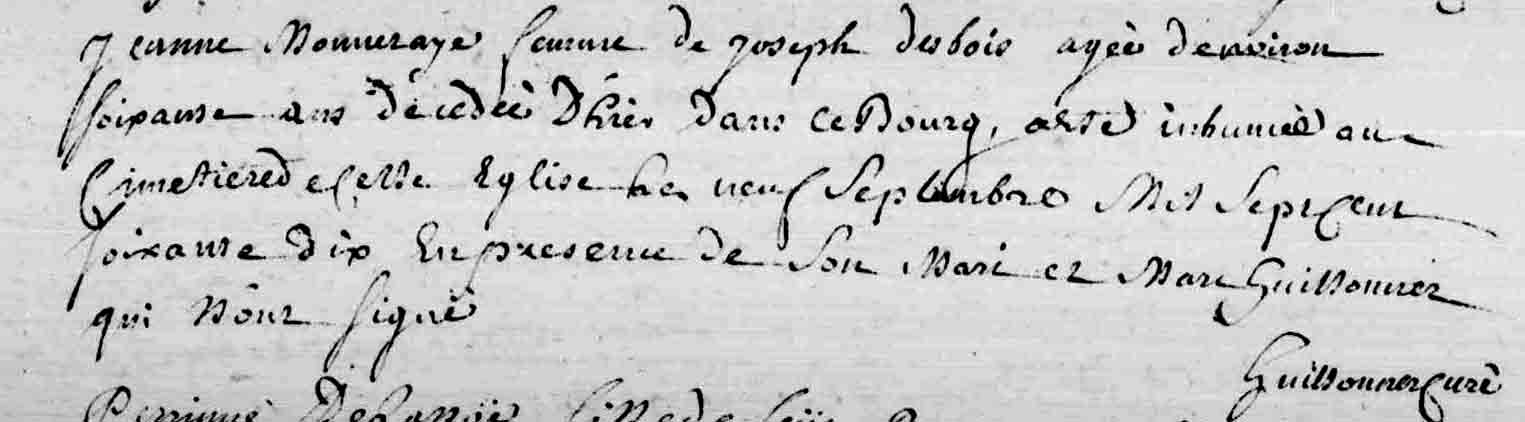 Jeanne Monneraye femme de joseph desbois agèe denviron
soixante ans dècedèe D'hier dans ce Bourg, a estè inhumèe au
Cimetiere de cette Eglise Le neuf Septembre Mil Sept Cent
soixante dix En presence de Son Mari et Marc Guillonnier
qui N'ont signè
Guillonner Curè
Perrinne